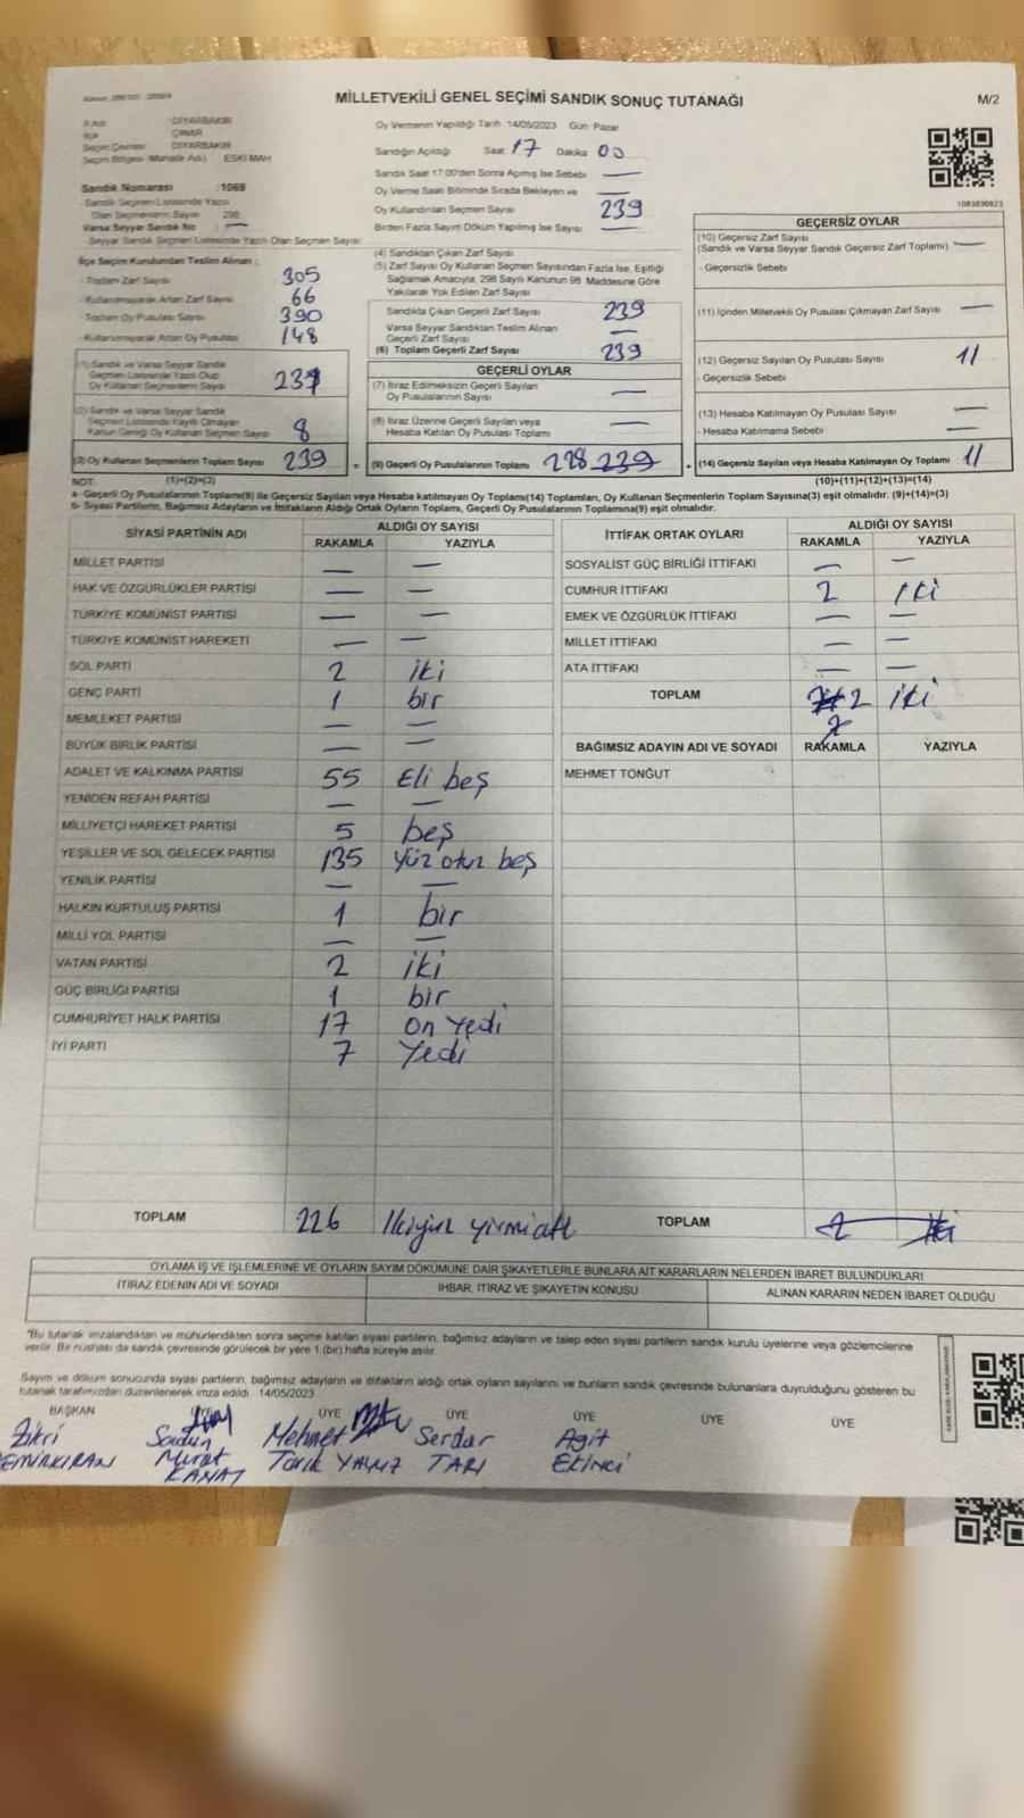 MİLLETVEKİLİ GENEL SEÇİMİ SANDIK SONUÇ TUTANAĞI
M/2
İli DİYARBAKIR
İlçe ÇINAR
Seçim Çevresi DİYARBAKIR
Seçim Bölgesi (Mahalle Adı) ESKİ MAH
Oy Vermenin Yapıldığı Tarih 14/05/2023 Gün Pazar
Sandığın Açıldığı Saat 17 Dakika 00
Sandık Saat 17:00'den Sonra Açılmış İse Sebebi —
Oy Verme Saati Bitiminde Sırada Bekleyen ve —
Oy Kullandırılan Seçmen Sayısı 239
Birden Fazla Sayım Döküm Yapılmış İse Sayısı —
Sandık Numarası : 1069
Sandık Seçmen Listesinde Yazılı
Olan Seçmenlerin Sayısı 298
Varsa Seyyar Sandık No : —
Seyyar Sandık Seçmen Listesinde Yazılı Olan Seçmen Sayısı
İlçe Seçim Kurulundan Teslim Alınan :
- Toplam Zarf Sayısı 305
- Kullanılmayarak Artan Zarf Sayısı 66
Toplam Oy Pusulası Sayısı 390
- Kullanılmayarak Artan Oy Pusulası 148
(1) Sandık ve Varsa Seyyar Sandık
Seçmen Listesinde Yazılı Olup
Oy Kullanan Seçmenlerin Sayısı
(2) Sandık ve Varsa Seyyar Sandık
Seçmen Listesinde Kayıtlı Olmayan
Kanun Gereği Oy Kullanan Seçmen Sayısı 8
(3) Oy Kullanan Seçmenlerin Toplam Sayısı 239
(1)+(2)=(3)
(4) Sandıktan Çıkan Zarf Sayısı
(5) Zarf Sayısı Oy Kullanan Seçmen Sayısından Fazla İse, Eşitliği
Sağlamak Amacıyla, 298 Sayılı Kanunun 98 Maddesine Göre
Yakılarak Yok Edilen Zarf Sayısı
Sandıkta Çıkan Geçerli Zarf Sayısı 239
Varsa Seyyar Sandıktan Teslim Alınan
Geçerli Zarf Sayısı —
(6) Toplam Geçerli Zarf Sayısı 239
GEÇERLİ OYLAR
(7) İtiraz Edilmeksizin Geçerli Sayılan
Oy Pusulalarının Sayısı —
(8) İtiraz Üzerine Geçerli Sayılan veya
Hesaba Katılan Oy Pusulası Toplamı —
= (9) Geçerli Oy Pusulalarının Toplamı 228 239
1083890823
GEÇERSİZ OYLAR
(10) Geçersiz Zarf Sayısı
(Sandık ve Varsa Seyyar Sandık Geçersiz Zarf Toplamı) —
- Geçersizlik Sebebi
(11) İçinden Milletvekili Oy Pusulası Çıkmayan Zarf Sayısı —
(12) Geçersiz Sayılan Oy Pusulası Sayısı 11
- Geçersizlik Sebebi
(13) Hesaba Katılmayan Oy Pusulası Sayısı —
- Hesaba Katılmama Sebebi —
+ (14) Geçersiz Sayılan veya Hesaba Katılmayan Oy Toplamı 11
(10)+(11)+(12)+(13)=(14)
NOT:
a- Geçerli Oy Pusulalarının Toplamı(9) ile Geçersiz Sayılan veya Hesaba katılmayan Oy Toplamı(14) Toplamları, Oy Kullanan Seçmenlerin Toplam Sayısına(3) eşit olmalıdır. (9)+(14)=(3)
b- Siyasi Partilerin, Bağımsız Adayların ve İttifakların Aldığı Ortak Oyların Toplamı, Geçerli Oy Pusulalarının Toplamına(9) eşit olmalıdır.
SİYASİ PARTİNİN ADI ALDIĞI OY SAYISI
RAKAMLA YAZIYLA
MİLLET PARTİSİ — —
HAK VE ÖZGÜRLÜKLER PARTİSİ — —
TÜRKİYE KOMÜNİST PARTİSİ — —
TÜRKİYE KOMÜNİST HAREKETİ — —
SOL PARTİ 2 iki
GENÇ PARTİ 1 bir
MEMLEKET PARTİSİ — —
BÜYÜK BİRLİK PARTİSİ — —
ADALET VE KALKINMA PARTİSİ 55 Eli beş
YENİDEN REFAH PARTİSİ — —
MİLLİYETÇİ HAREKET PARTİSİ 5 beş
YEŞİLLER VE SOL GELECEK PARTİSİ 135 yüz otuz beş
YENİLİK PARTİSİ — —
HALKIN KURTULUŞ PARTİSİ 1 bir
MİLLİ YOL PARTİSİ — —
VATAN PARTİSİ 2 iki
GÜÇ BİRLİĞİ PARTİSİ 1 bir
CUMHURİYET HALK PARTİSİ 17 on yedi
İYİ PARTİ 7 Yedi
TOPLAM 226 İkiyüz yirmi altı
İTTİFAK ORTAK OYLARI ALDIĞI OY SAYISI
RAKAMLA YAZIYLA
SOSYALİST GÜÇ BİRLİĞİ İTTİFAKI — —
CUMHUR İTTİFAKI 2 iki
EMEK VE ÖZGÜRLÜK İTTİFAKI — —
MİLLET İTTİFAKI — —
ATA İTTİFAKI — —
TOPLAM 2 iki
BAĞIMSIZ ADAYIN ADI VE SOYADI RAKAMLA YAZIYLA
MEHMET TONĞUT
TOPLAM 2 iki
OYLAMA İŞ VE İŞLEMLERİNE VE OYLARIN SAYIM DÖKÜMÜNE DAİR ŞİKAYETLERLE BUNLARA AİT KARARLARIN NELERDEN İBARET BULUNDUKLARI
İTİRAZ EDENİN ADI VE SOYADI İHBAR, İTİRAZ VE ŞİKAYETİN KONUSU ALINAN KARARIN NEDEN İBARET OLDUĞU
"Bu tutanak imzalandıktan ve mühürlendikten sonra seçime katılan siyasi partilerin, bağımsız adayların ve talep eden siyasi partilerin sandık kurulu üyelerine veya gözlemcilerine
verilir. Bir nüshası da sandık çevresinde görülecek bir yere 1 (bir) hafta süreyle asılır.
Sayım ve döküm sonucunda siyasi partilerin, bağımsız adayların ve ittifakların aldığı ortak oyların sayılarını ve bunların sandık çevresinde bulunanlara duyurulduğunu gösteren bu
tutanak tarafımızdan düzenlenerek imza edildi. 14/05/2023
BAŞKAN ÜYE ÜYE ÜYE ÜYE ÜYE
Zikri Sadun Mehmet Serdar Agit
Murat Tarık YAVUZ TARI EKİNCİ
KANAT